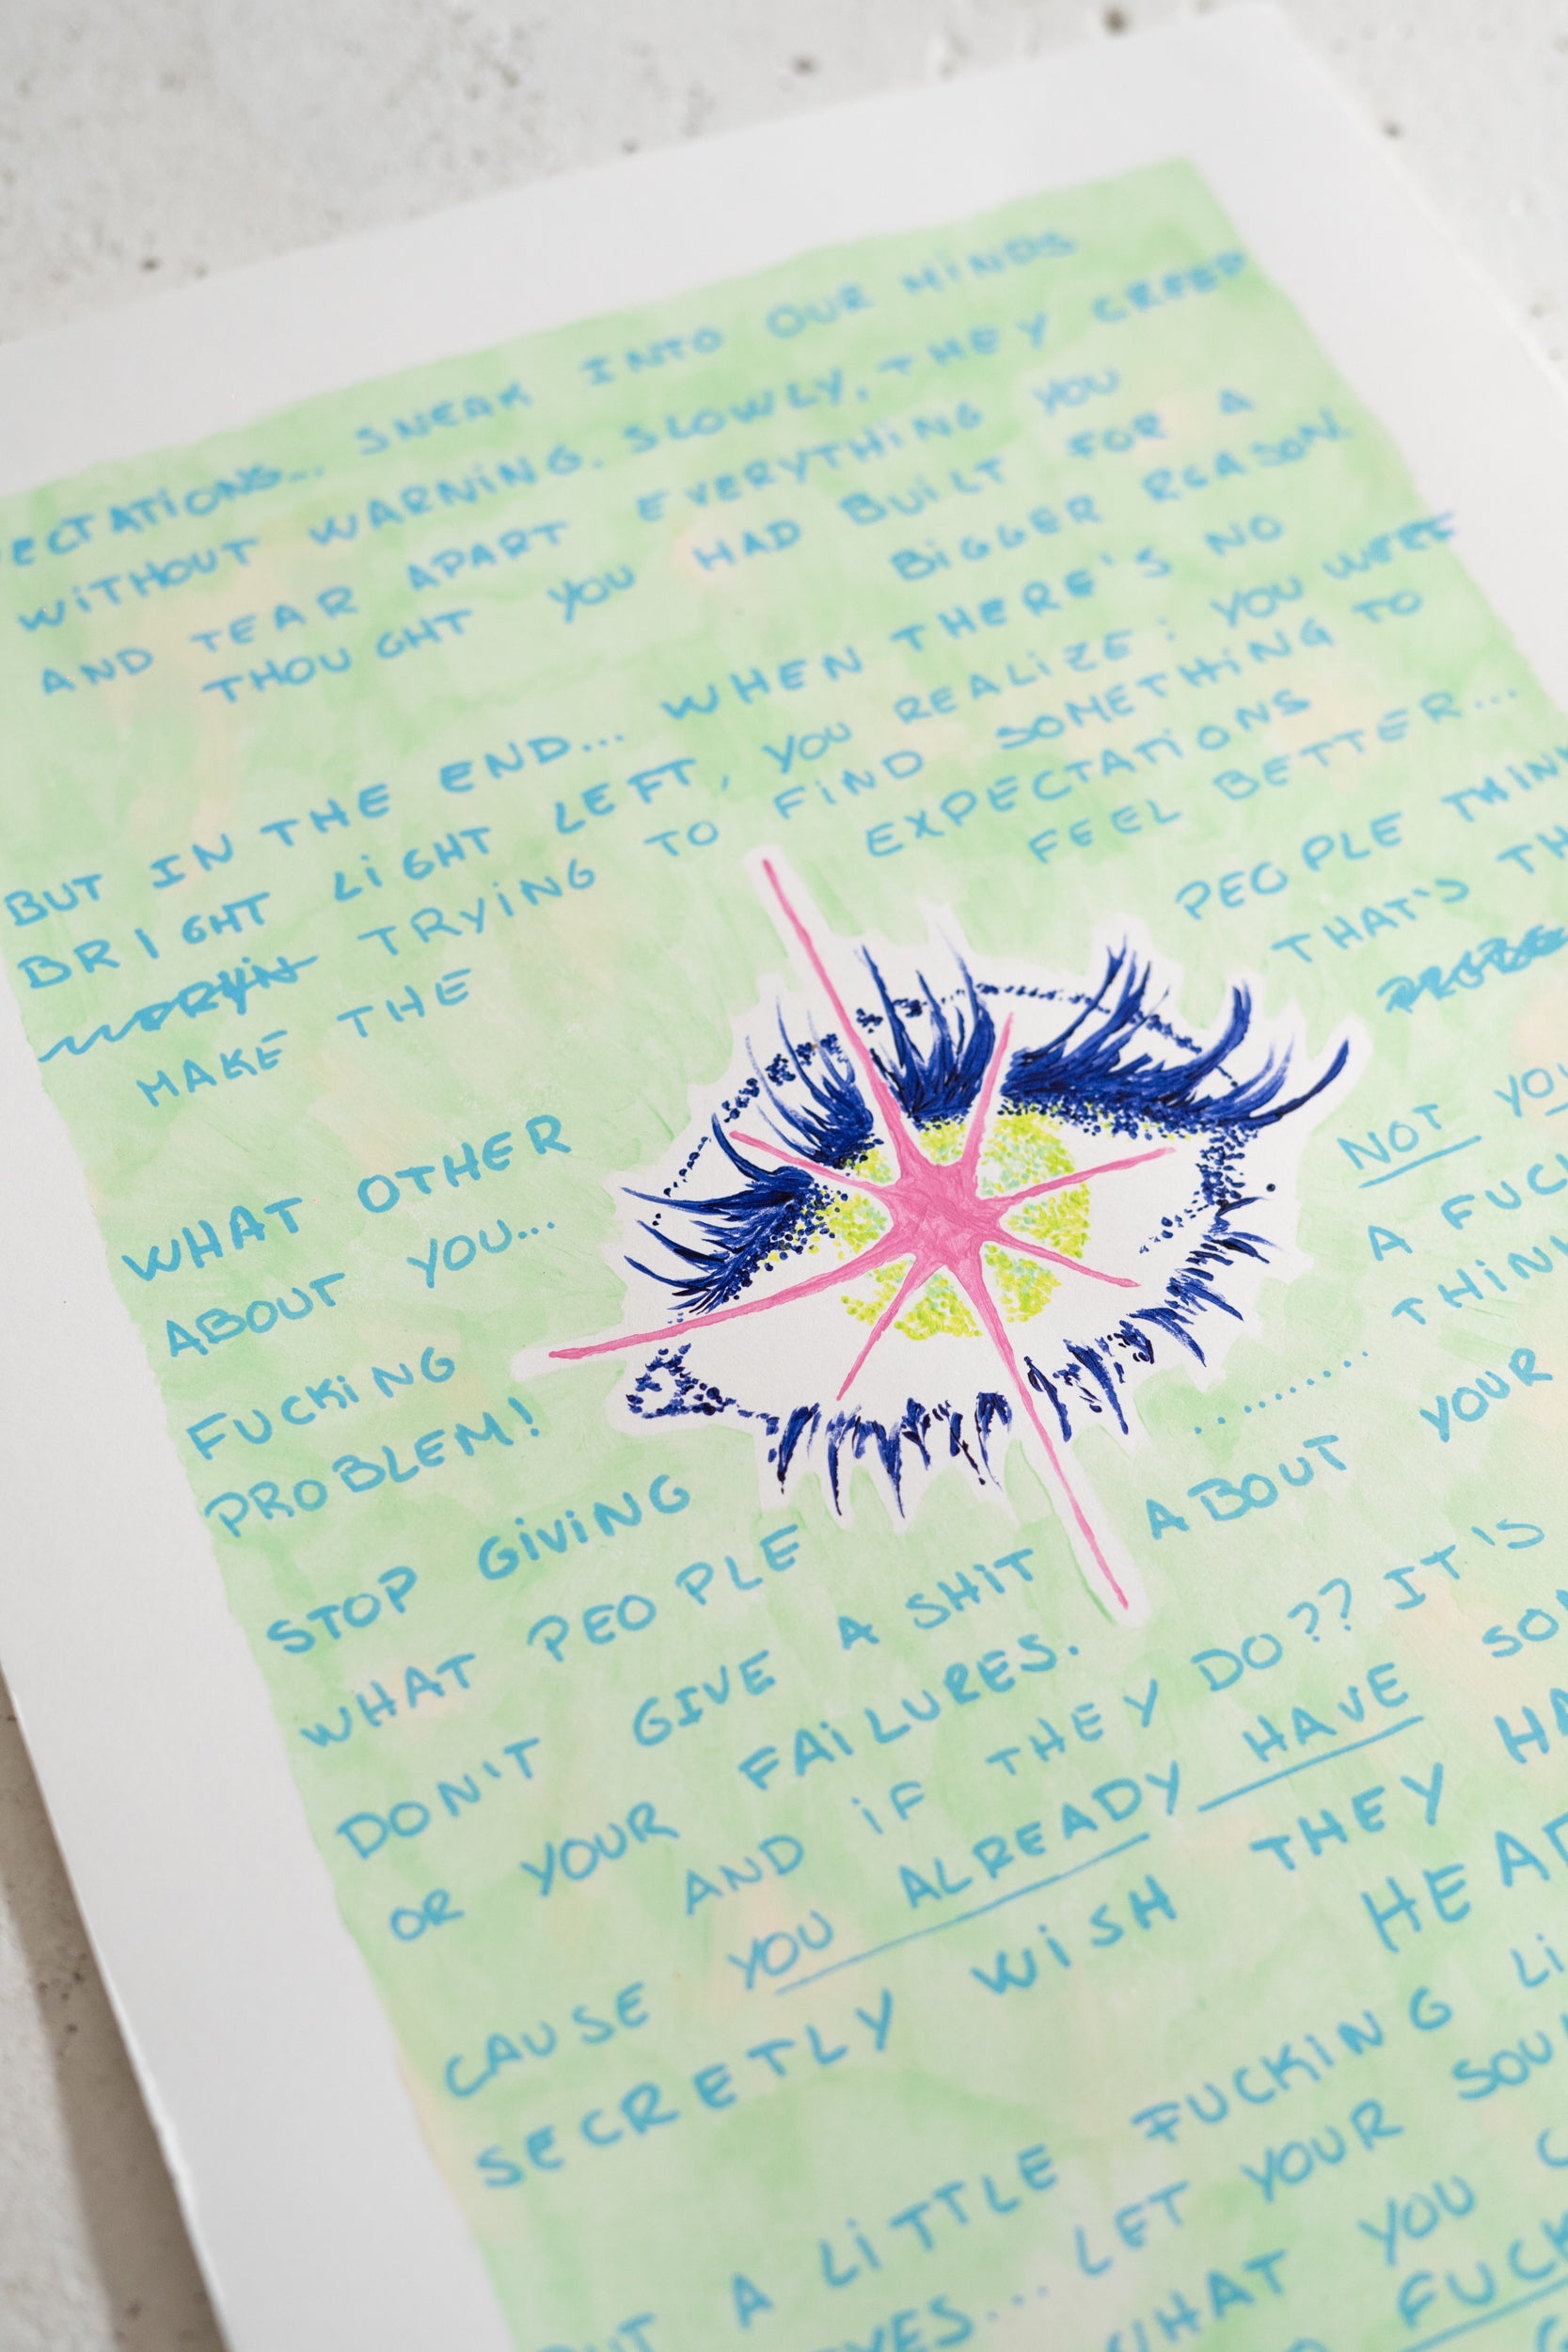 ECTATIONS... SNEAK INTO OUR MINDS
WITHOUT WARNING. SLOWLY, THEY CREEP
AND TEAR APART EVERYTHING YOU
THOUGHT YOU HAD BUILT FOR A
BIGGER REASON.
BUT IN THE END... WHEN THERE'S NO
BRIGHT LIGHT LEFT, YOU REALIZE: YOU WERE
TRYING TO FIND SOMETHING TO
MAKE THE EXPECTATIONS
FEEL BETTER...
WHAT OTHER PEOPLE THINK
ABOUT YOU... THAT'S TH
NOT YOU
FUCKING A FUC
PROBLEM! THIN
STOP GIVING ........
WHAT PEOPLE ABOUT YOUR
DON'T GIVE A SHIT
OR YOUR FAILURES.
AND IF THEY DO?? IT'S
CAUSE YOU ALREADY HAVE SO
SECRETLY WISH THEY HA
HEA
UT A LITTLE FUCKING LI
YES... LET YOUR SOU
HAT YOU C
FUCK